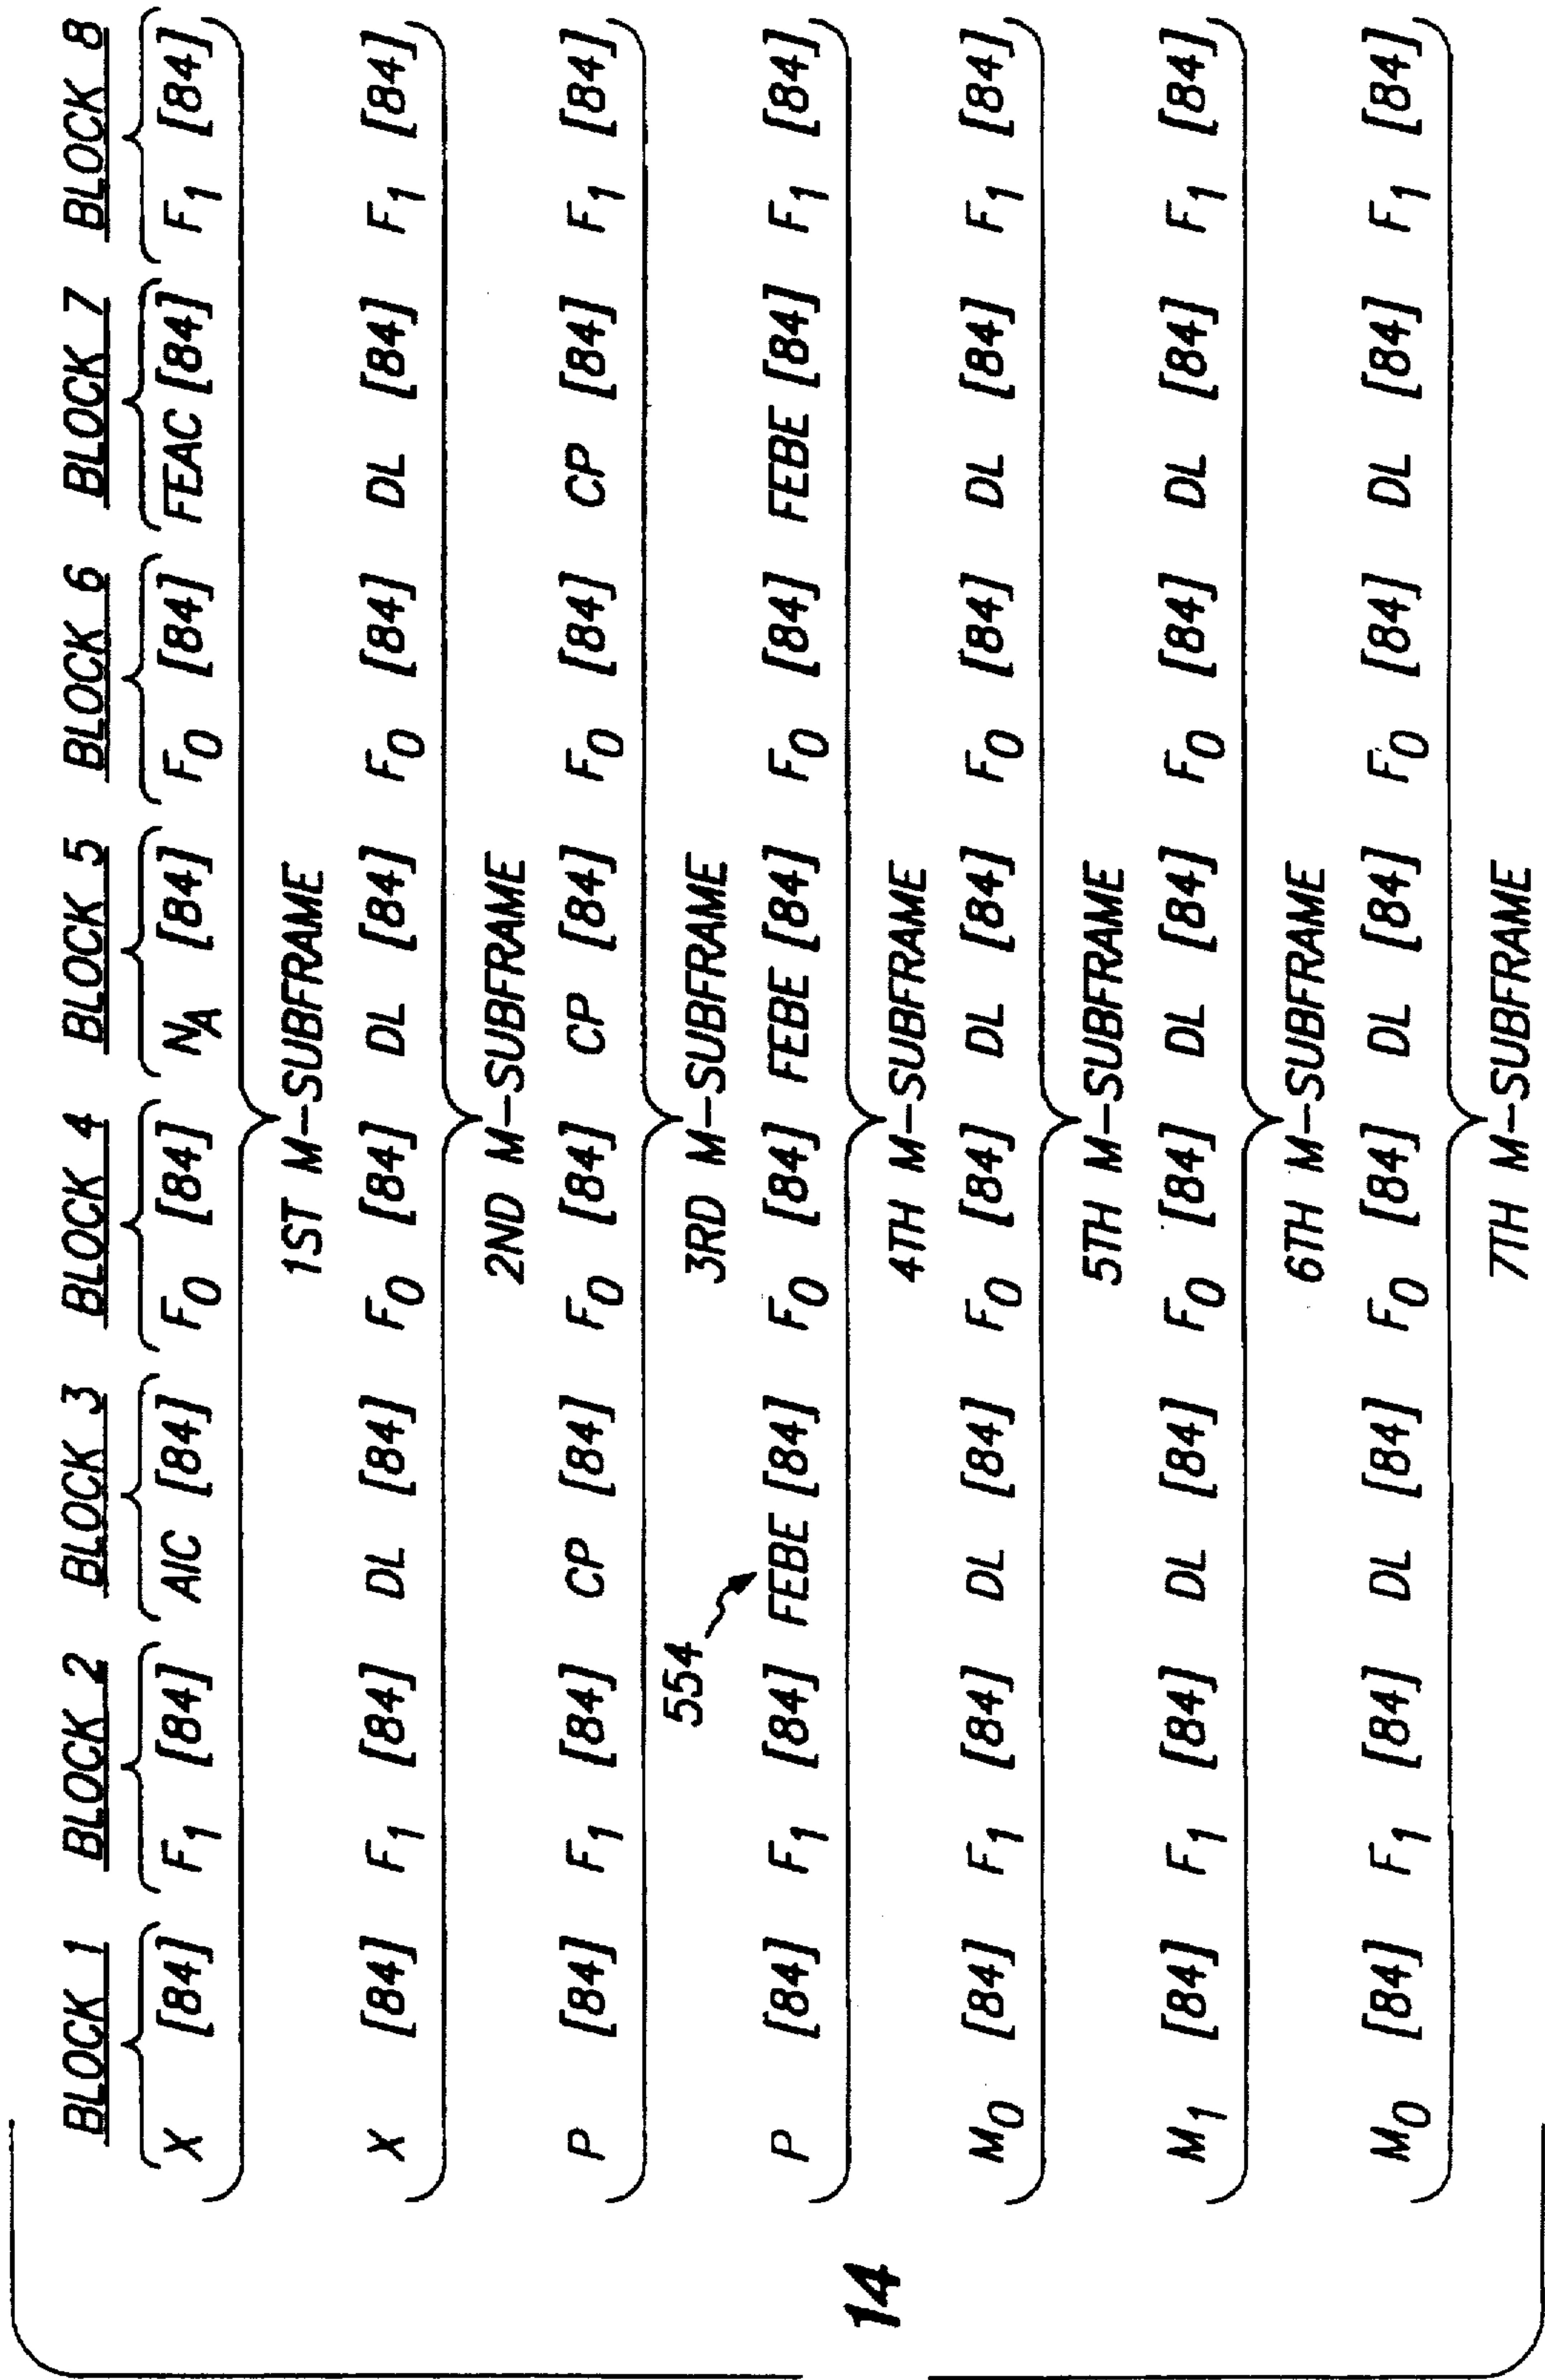 BLOCK 1 BLOCK 2 BLOCK 3 BLOCK 4 BLOCK 5 BLOCK 6 BLOCK 7 BLOCK 8
X [84] F1 [84] AIC [84] F0 [84] NA [84] F0 [84] FEAC [84] F1 [84]
1ST M-SUBFRAME
X [84] F1 [84] DL [84] F0 [84] DL [84] F0 [84] DL [84] F1 [84]
2ND M-SUBFRAME
P [84] F1 [84] CP [84] F0 [84] CP [84] F0 [84] CP [84] F1 [84]
3RD M-SUBFRAME
554
P [84] F1 [84] FEBE [84] F0 [84] FEBE [84] F0 [84] FEBE [84] F1 [84]
4TH M-SUBFRAME
14
M0 [84] F1 [84] DL [84] F0 [84] DL [84] F0 [84] DL [84] F1 [84]
5TH M-SUBFRAME
M1 [84] F1 [84] DL [84] F0 [84] DL [84] F0 [84] DL [84] F1 [84]
6TH M-SUBFRAME
M0 [84] F1 [84] DL [84] F0 [84] DL [84] F0 [84] DL [84] F1 [84]
7TH M-SUBFRAME